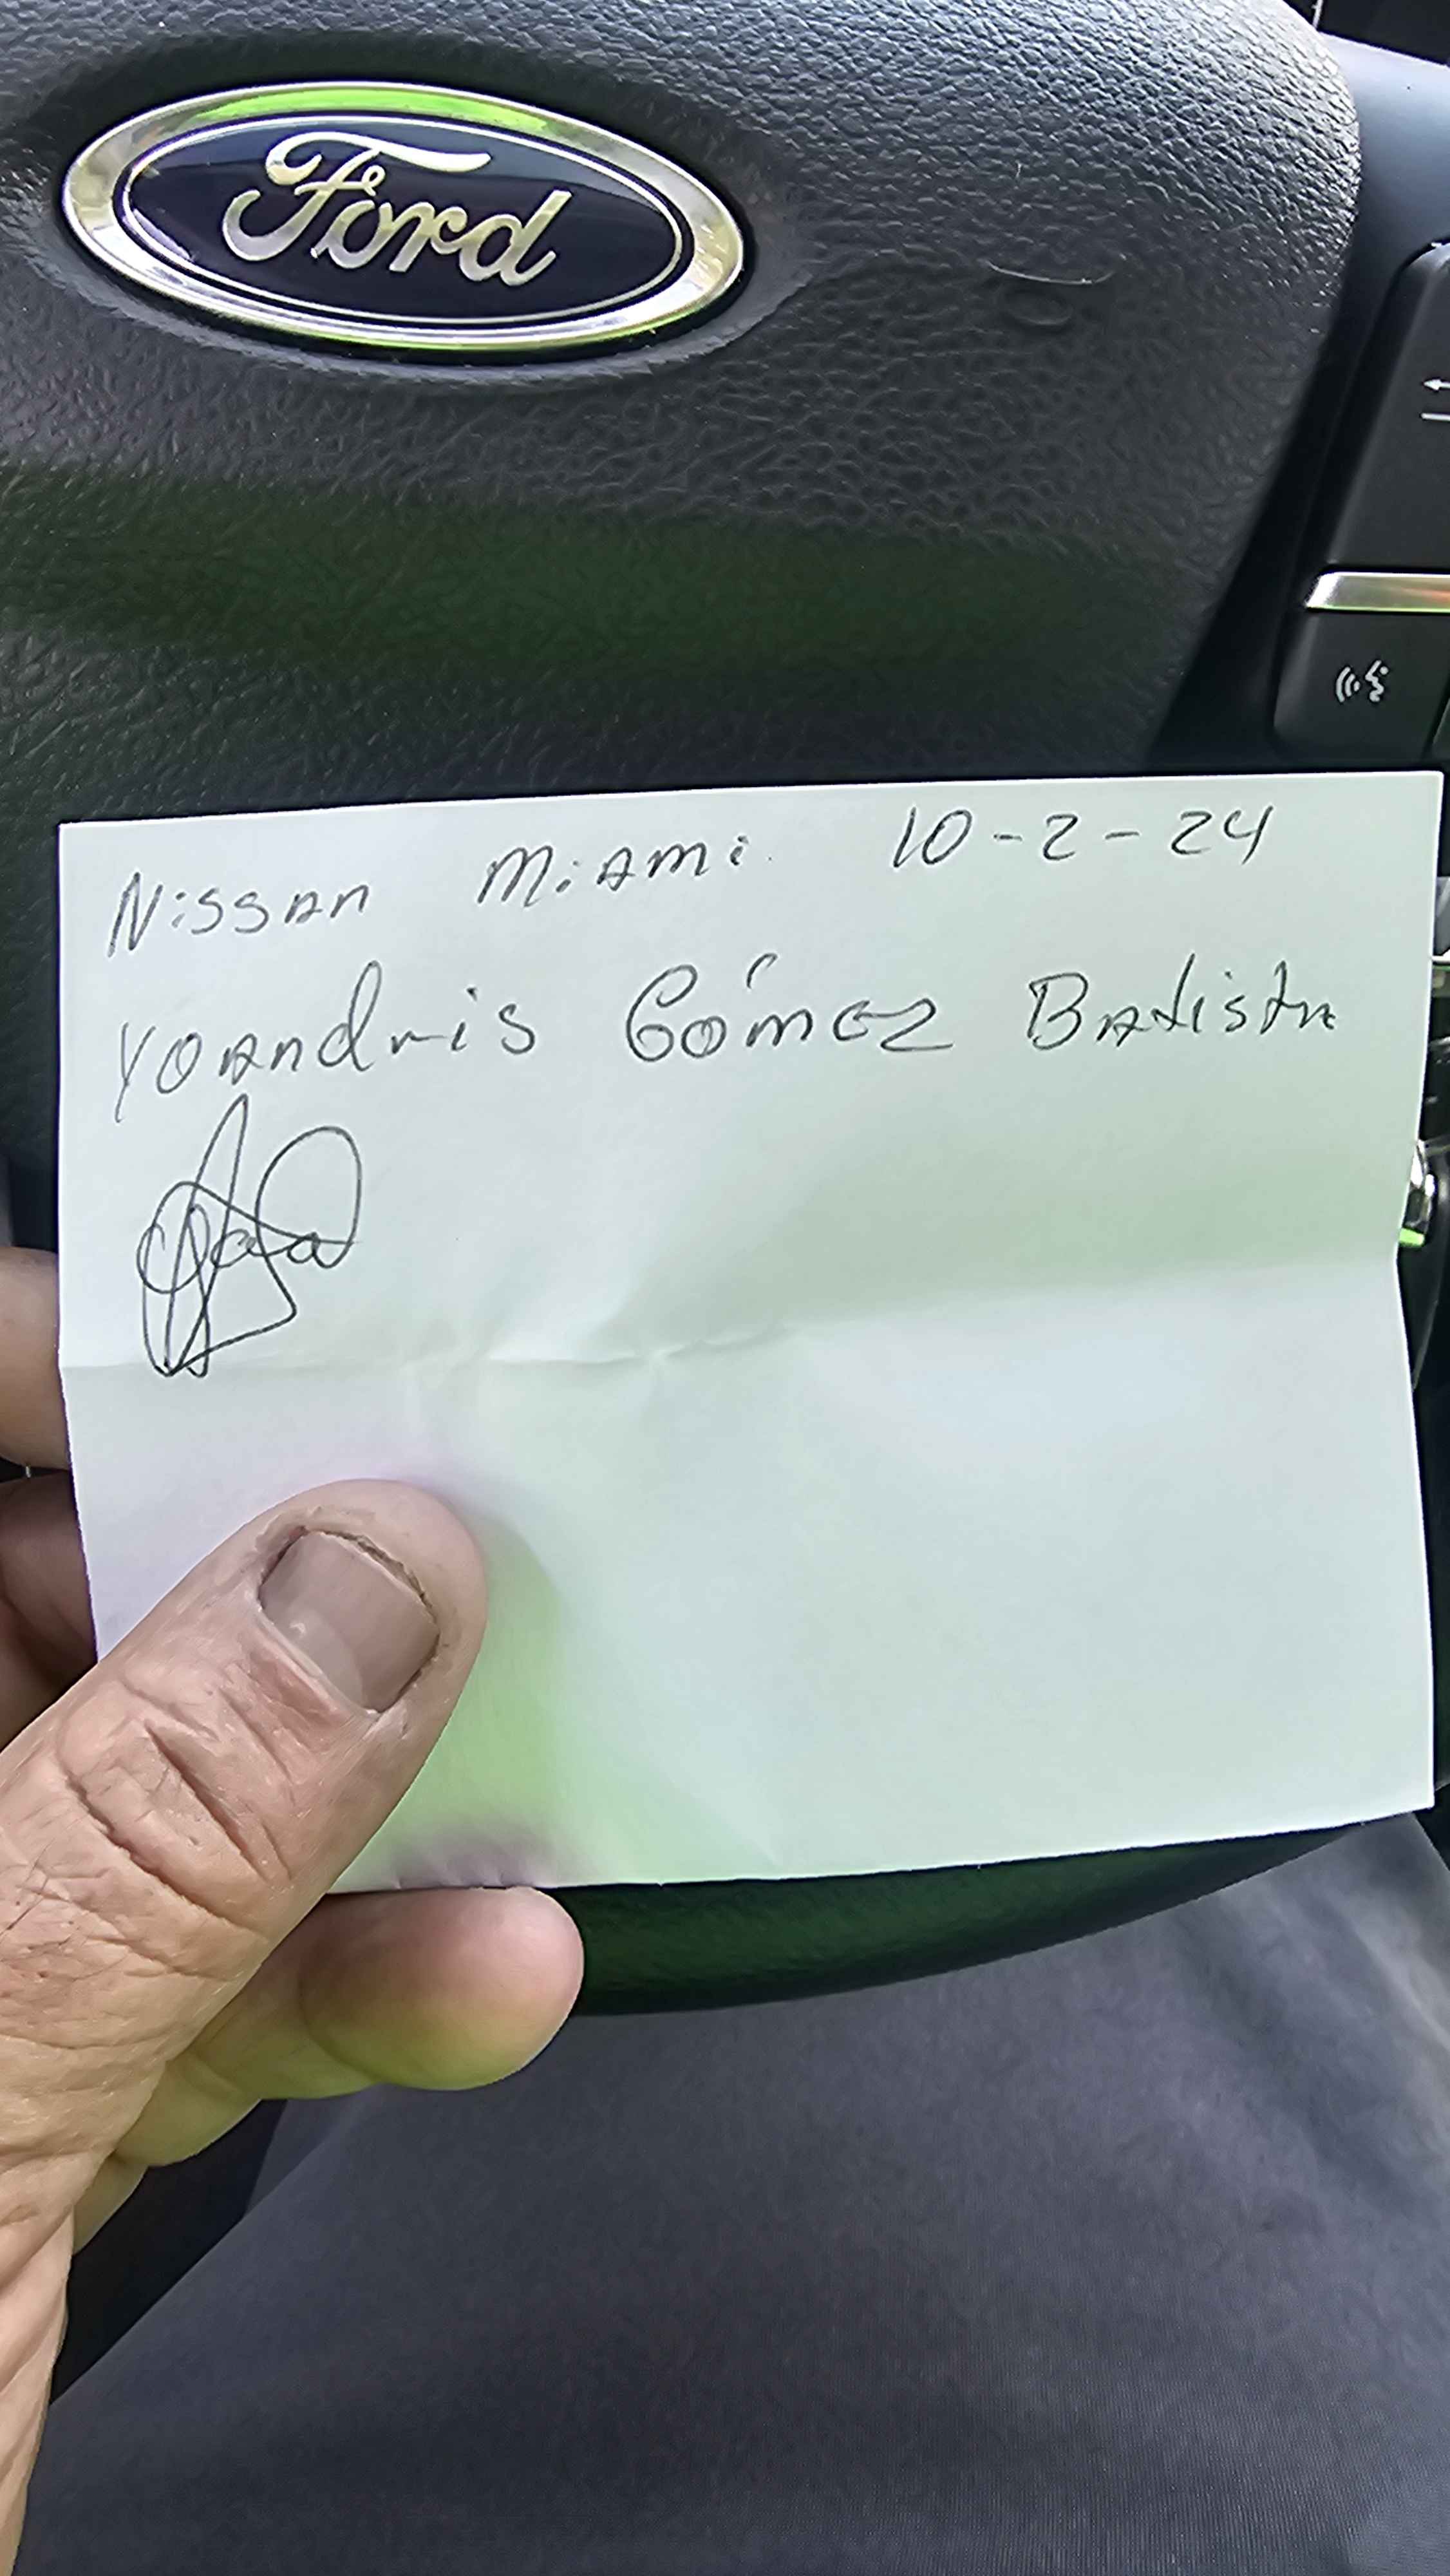 Ford
Nissan Miami 10-2-24
Yoandris Gómez Batista